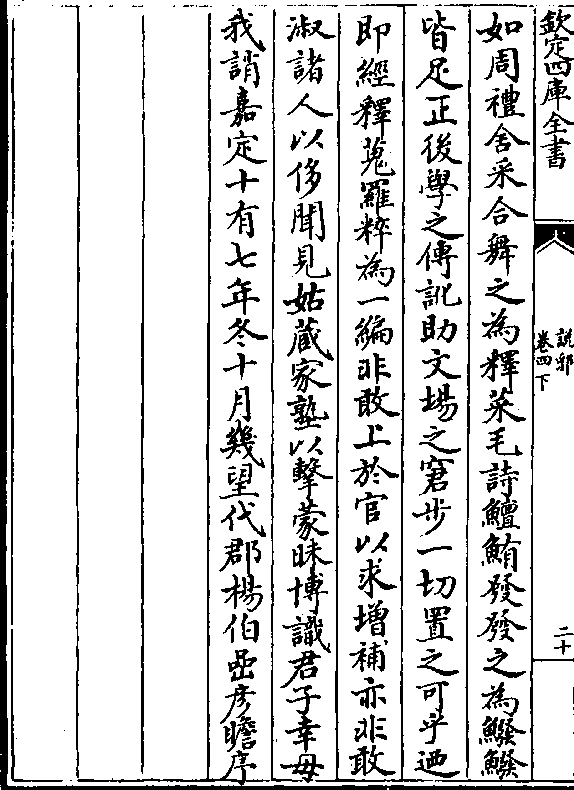 欽定四庫全書
說郛
卷四下
二十
如周禮舍采合舞之為釋菜毛詩鱣鮪發發之為鱍鱍
皆足正後學之傳訛助文場之窘步一切置之可乎廼
即經釋蒐羅粹為一編非敢上於官以求增補亦非敢
淑諸人以侈聞見姑蔵家塾以擊蒙昧博識君子幸毋
我誚嘉定十有七年冬十月幾望代郡楊伯嵒彥瞻序